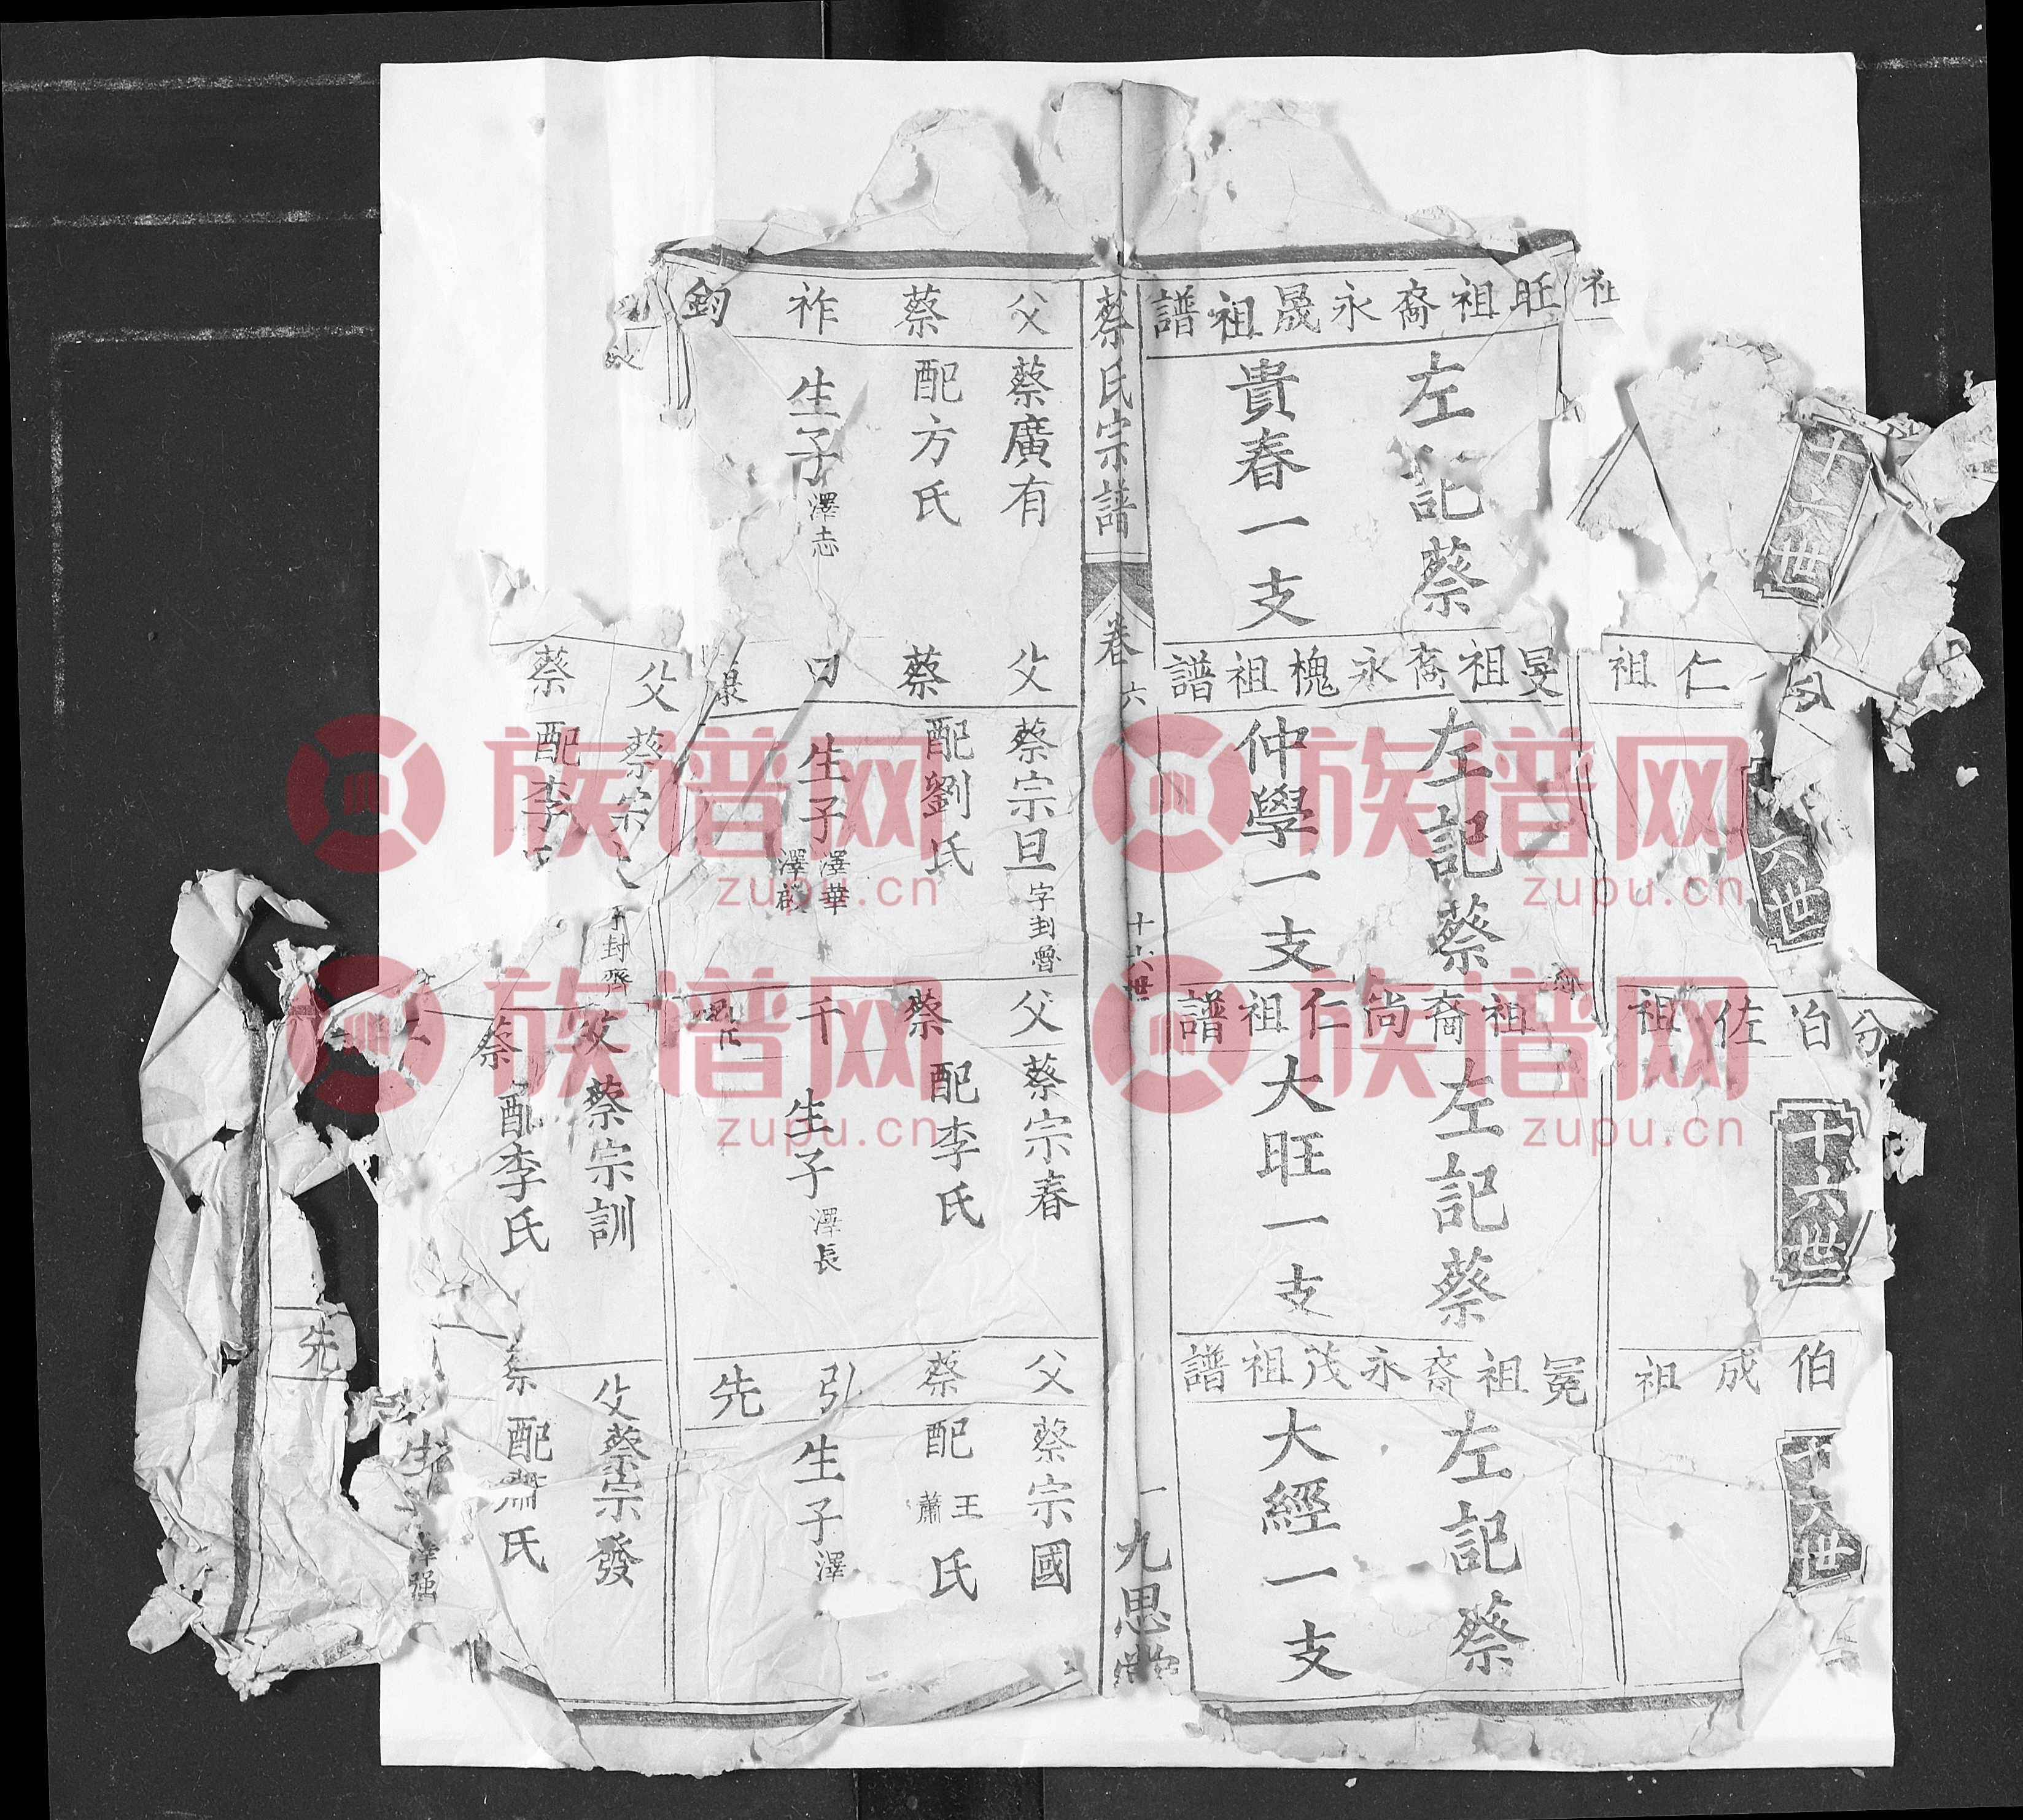 十六世
社
旺祖裔永晟祖譜
左記蔡
貴春一支
仁祖
六世
旻祖裔永槐祖譜
左記蔡
仲學一支
分伯佐祖
十六世
祖裔尚仁祖譜
左記蔡
大旺一支
伯成祖
十六世
冕祖裔永茂祖譜
左記蔡
大經一支
蔡氏宗譜
卷六
十六世
一
九思堂
父蔡廣有
蔡配方氏
祚生子澤志
鈞
父蔡宗旦字封魯
蔡配劉氏
曰生子澤華
澤啟
父蔡宗春
蔡配李氏
千生子澤長
父蔡宗國
蔡配王蕭氏
弘生子澤
先
父蔡宗
字封齊
蔡配李氏
父蔡宗訓
蔡配李氏
父蔡宗發
蔡配蕭氏
生
澤强
先
族谱网
zupu.cn
族谱网
zupu.cn
族谱网
zupu.cn
族谱网
zupu.cn